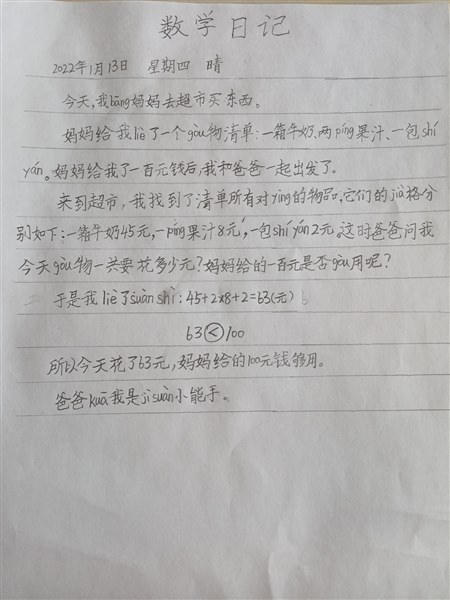 数学日记
2022年1月13日 星期四 晴
今天,我bāng妈妈去超市买东西。
妈妈给我liè了一个gòu物清单:一箱牛奶、两píng果汁、一包shí
yán。妈妈给我了一百元钱后,我和爸爸一起出发了。
来到超市,我找到了清单所有对yìng的物品,它们的jià格分
别如下:一箱牛奶45元,一píng果汁8元,一包shí yán 2元。这时爸爸问我
今天gòu物一共要花多少元?妈妈给的一百元是否gòu用呢?
于是我liè了suàn shì:45+2×8+2=63(元)
63<100
所以今天花了63元,妈妈给的100元钱够用。
爸爸kuā我是jì suàn小能手。